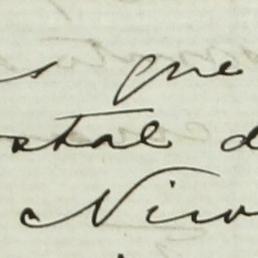 s que
ostal d
Nivo